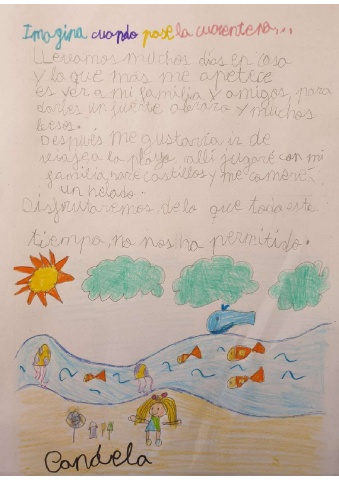 Imagina cuando pase la cuarentena...
Llevamos muchos días en casa
y lo que más me apetece
es ver a mi familia y amigos, para
darles un fuerte abrazo y muchos
besos.
Después me gustaría ir de
viaje a la playa, allí jugaré con mi
familia, haré castillos y me comeré
un helado.
Disfrutaremos de lo que todo este
tiempo, no nos ha permitido.
Candela